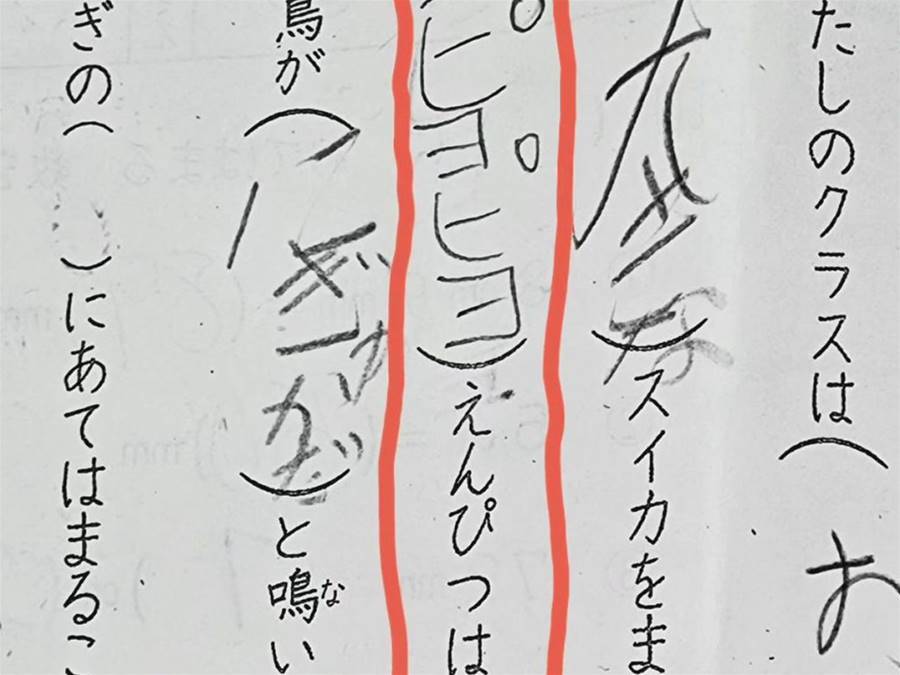 たしのクラスは(お
大きな)スイカをま
ピヨピヨ)えんぴつは
鳥が( )と鳴い
な
ぎの( )にあてはまるこ